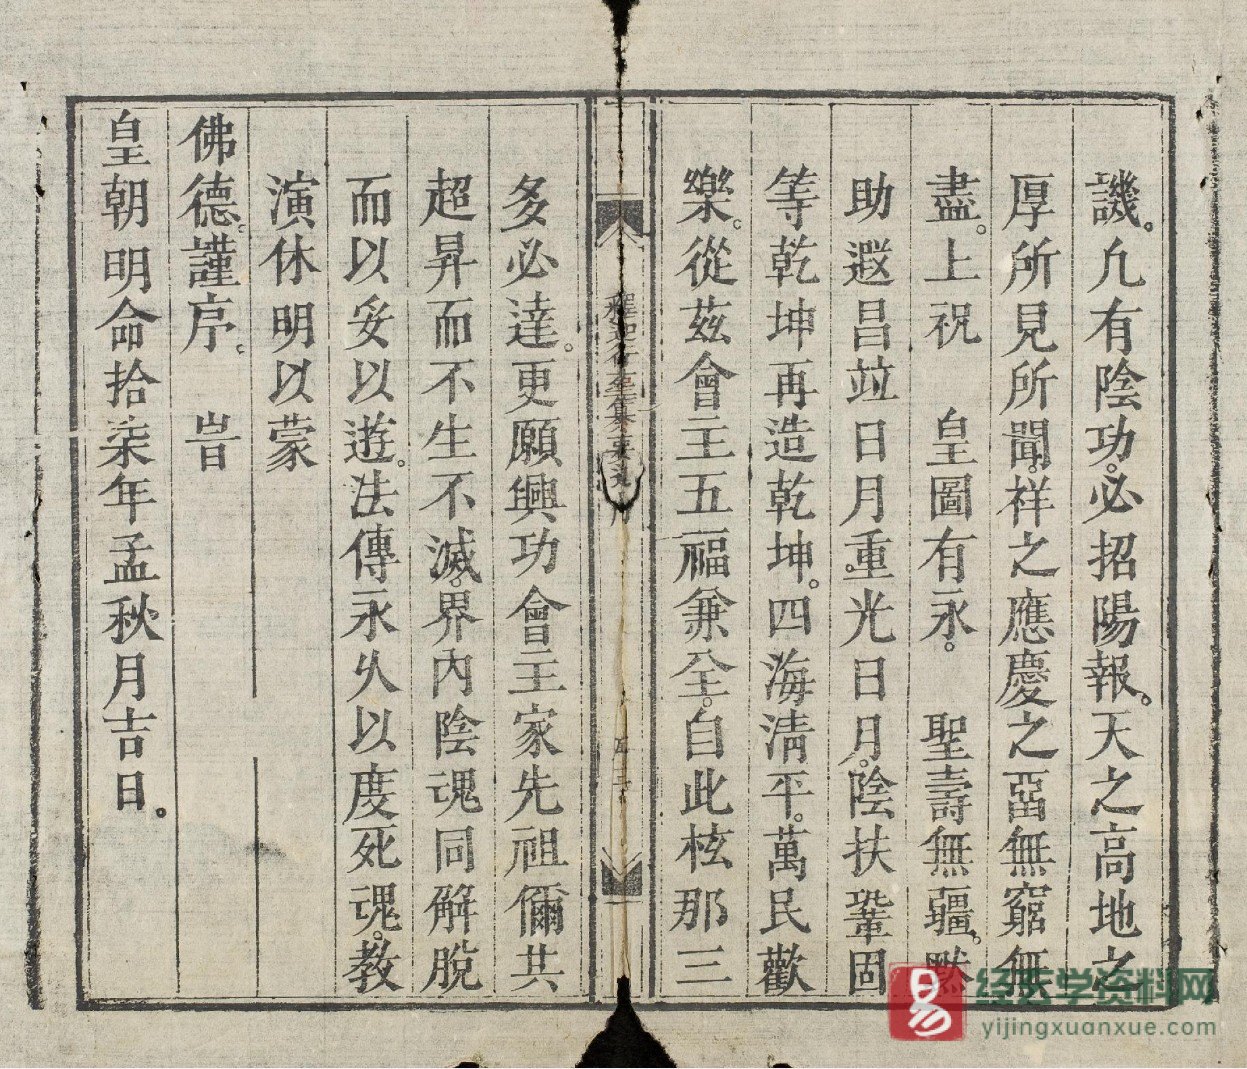 譏。凡有陰功。必招陽報。天之高地之
厚所見所聞。祥之應慶之亞無窮無
盡。上祝　皇圖有永。　聖壽無疆。黙
助遐昌竝日月重光日月。陰扶鞏固
等乾坤再造乾坤。四海清平。萬民歡
樂。從茲會主五福兼全。自此檀那三
多必達。更願興功會主家先祖禰共
超昇而不生不滅。界內陰魂同解脫
而以妥以遊。法傳永久以度死魂。教
演休明以蒙
佛德。謹序。　旹
皇朝明命拾柒年孟秋月吉日。
易
经历学资料网
yijingxuanxue.com